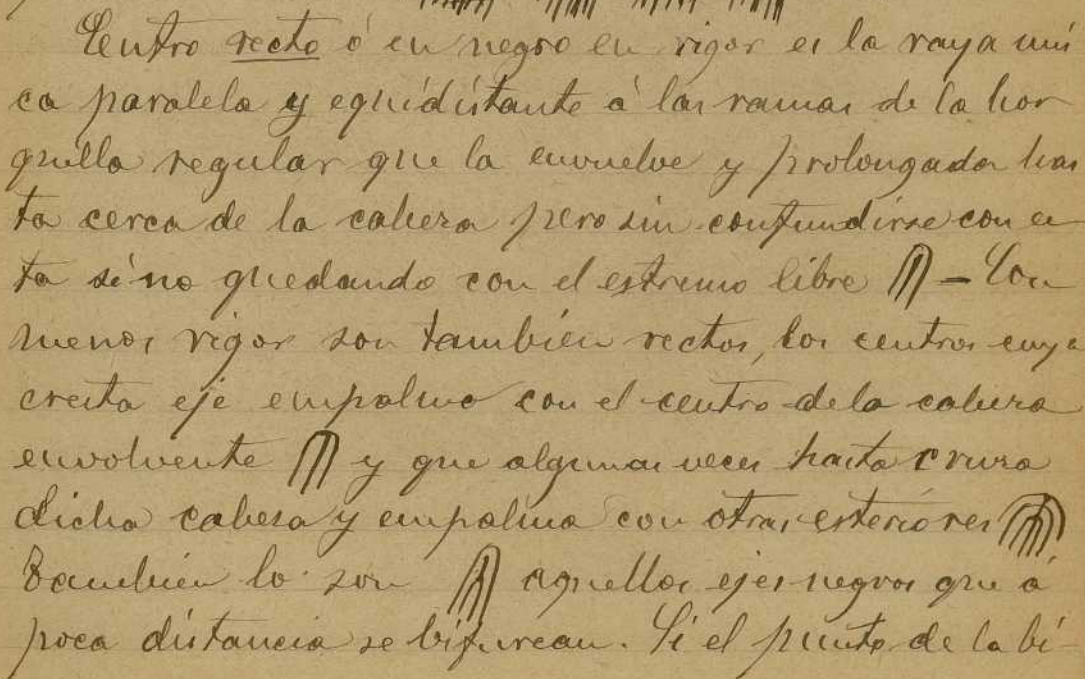 Centro recto ó en negro en rigor es la raya úni
ca paralela y equidistante á las ramas de la hor
quilla regular que la envuelve y prolongada has
ta cerca de la cabeza pero sin confundirse con es
ta sino quedando con el estremo libre — Con
menos rigor son también rectos, los centros cuya
cresta eje empalma con el centro de la cabeza
envolvente y que algunas veces hasta cruza
dicha cabeza y empalma con otras esteriores
También lo son aquellos ejes negros que á
poca distancia se bifurcan. Si el punto de la bi-